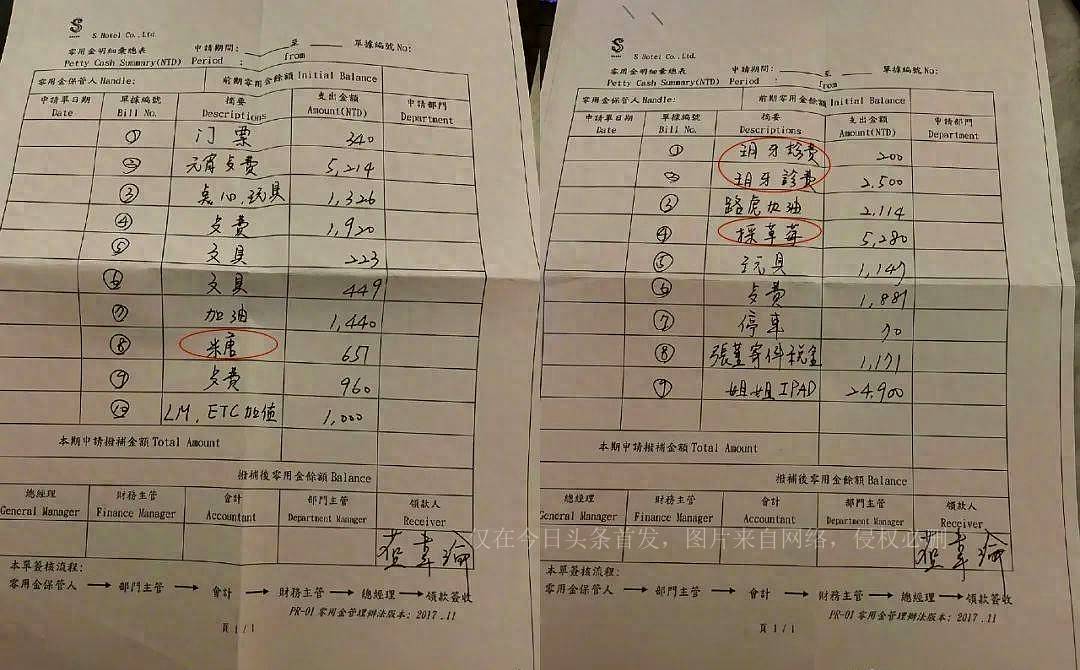 S
S Hotel Co., Ltd.
零用金明細彙總表 申請期間: 至 單據編號 No:
Petty Cash Summary(NTD) Period : from
零用金保管人 Handle: 前期零用金餘額 Initial Balance
申請單日期 單據編號 摘要 支出金額 申請部門
Date Bill No. Descriptions Amount(NTD) Department
① 门票 340
② 元宵点费 5,214
③ 点心,玩具 1,326
④ 点費 1,920
⑤ 文具 223
⑥ 文具 449
⑦ 加油 1,440
⑧ 米唐 657
⑨ 点費 960
⑩ LM, ETC加值 1,000
本期申請撥補金額 Total Amount
撥補後零用金餘額 Balance
總經理 財務主管 會計 部門主管 領款人
General Manager Finance Manager Accountant Department Manager Receiver
本單簽核流程:
零用金保管人 → 部門主管 → 會計 → 財務主管 → 總經理 → 領款簽收
PR-01 零用金管理辦法版本: 2017.11
頁 1/1
S
S Hotel Co., Ltd.
零用金明細彙總表 申請期間: 至 單據編號 No:
Petty Cash Summary(NTD) Period : from
零用金保管人 Handle: 前期零用金餘額 Initial Balance
申請單日期 單據編號 摘要 支出金額 申請部門
Date Bill No. Descriptions Amount(NTD) Department
① 玥牙診費 200
② 玥牙診費 2,500
③ 路虎加油 2,114
④ 採草莓 5,280
⑤ 玩具 1,147
⑥ 点費 1,887
⑦ 停車 70
⑧ 張蓝寄件税金 1,171
⑨ 姐姐IPAD 24,900
本期申請撥補金額 Total Amount
撥補後零用金餘額 Balance
總經理 財務主管 會計 部門主管 領款人
General Manager Finance Manager Accountant Department Manager Receiver
本單簽核流程:
零用金保管人 → 部門主管 → 會計 → 財務主管 → 總經理 → 領款簽收
PR-01 零用金管理辦法版本: 2017.11
頁 1/1
仅在今日头条首发，图片来自网络，侵权必删